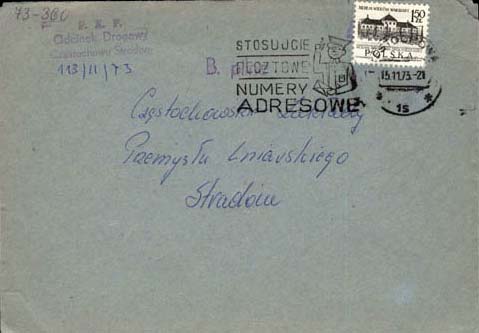 73-360
P. K. P.
Odcinek Drogowy
Częstochowa Stradom
113/11/73
B. pilne
STOSUJCIE
POCZTOWE
NUMERY
ADRESOWE
1,50 ZŁ
POLSKA
15.11.73.-21
1s
Częstochowskie Zakłady
Przemysłu Lniarskiego
Stradom